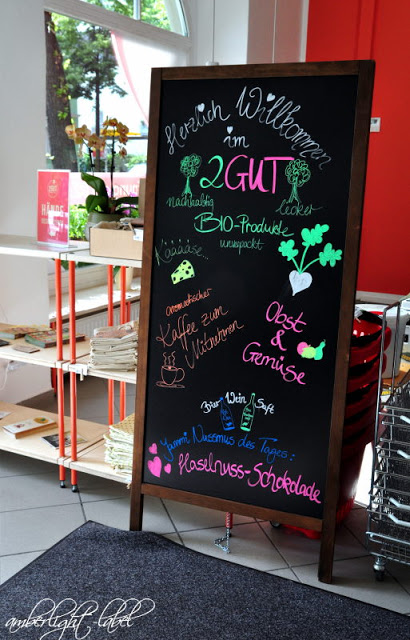 Herzlich Willkommen
im
2GUT
nachhaltig
lecker
BIO-Produkte
unverpackt
Kääääse...
aromatischer
Kaffee zum
Mitnehmen
Obst
&
Gemüse
Bier Wein Saft
Yammi Nussmus des Tages:
Haselnuss-Schokolade
HÄNDE
amberlight-label